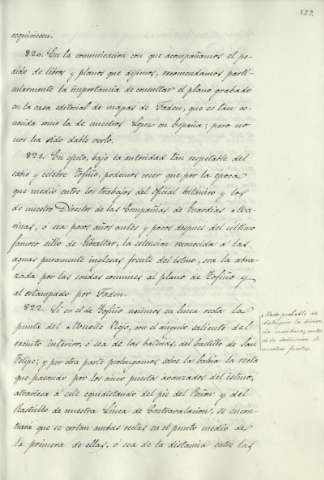 522.
requisicion.
820. En la comunicacion con que acompañamos el pe-
dido de libros y planos que dejimos, recomendamos parti-
cularmente la importancia de consultar el plano grabado
en la casa editorial de mapas de Faden, que es tan co-
nocida como la de nuestros Lopez en España; pero no
nos ha sido dable verlo.
821. En efecto, bajo la autoridad tan respetable del
sabio y célebre Tofiño, podemos creer que por la época
que medió entre los trabajos del oficial británico y los
de nuestro Director de las Compañias de Guardias Ma-
rinas, o sea pocos años antes y pocos despues del último
famoso sitio de Gibraltar, la estension reconocida a las
aguas puramente inglesas frente del istmo, era la abra-
zada por las sondas comunes al plano de Tofiño y
al estampado por Faden.
822. Si en el de Tofiño unimos en linea recta la
punta del Muelle Viejo, con el ángulo saliente del
recinto inferior, o sea de las baterias, del castillo de San
Felipe; y por otra parte prolongamos sobre la bahia la recta
que pasando por los cinco puestos avanzados del istmo,
atraviesa a este equidistando del pie del Peñon y del
Rastrillo de nuestra Linea de Contravalacion, se encon-
trará que se cortan ambas rectas en el punto medio de
la primera de ellas, ó sea de la distancia entre las